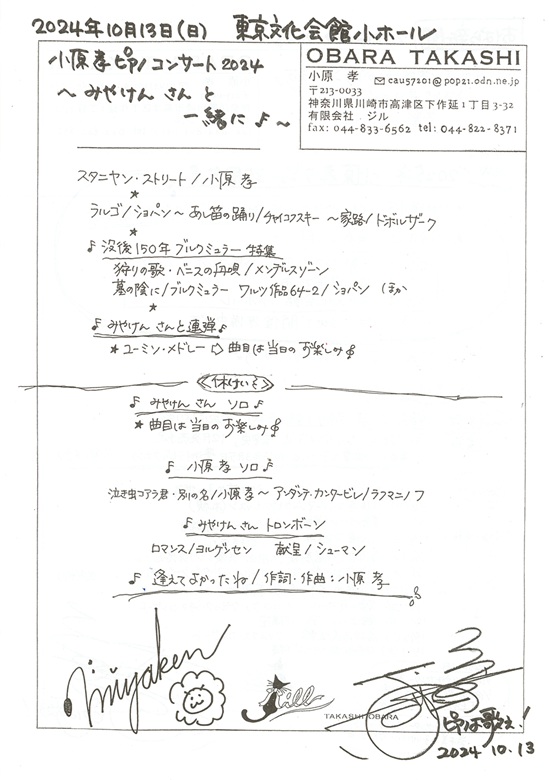 2024年10月13日(日) 東京文化会館小ホール
小原孝ピアノコンサート2024
〜みやけんさんと
一緒に♪〜
OBARA TAKASHI
小原 孝 ✉cau57201@pop21.odn.ne.jp
〒213-0033
神奈川県川崎市高津区下作延1丁目3-32
有限会社 ジル
fax: 044-833-6562 tel: 044-822-8371
スタニヤン・ストリート/小原孝
★
ラルゴ/ショパン〜あし笛の踊り/チャイコフスキー〜家路/ドボルザーク
★
♪没後150年ブルクミュラー特集
狩りの歌・ベニスの舟唄/メンデルスゾーン
墓の陰に/ブルクミュラー ワルツ作品64-2/ショパン (ほか
★
♪みやけんさんと連弾♪
★ユーミン・メドレー⇨曲目は当日のお楽しみ𝄞
《休けい》
♪みやけんさんソロ♪
★曲目は当日のお楽しみ𝄞
♪小原孝ソロ♪
泣き虫コアラ君・別の名/小原孝〜アンダンテ・カンタービレ/ラフマニノフ
♪みやけんさんトロンボーン
ロマンス/ヨルゲンセン 献呈/シューマン
♪逢えてよかったね/作詞・作曲:小原孝
miyaken
Jill
TAKASHI OBARA
孝
ピアノは歌え!
2024.10.13